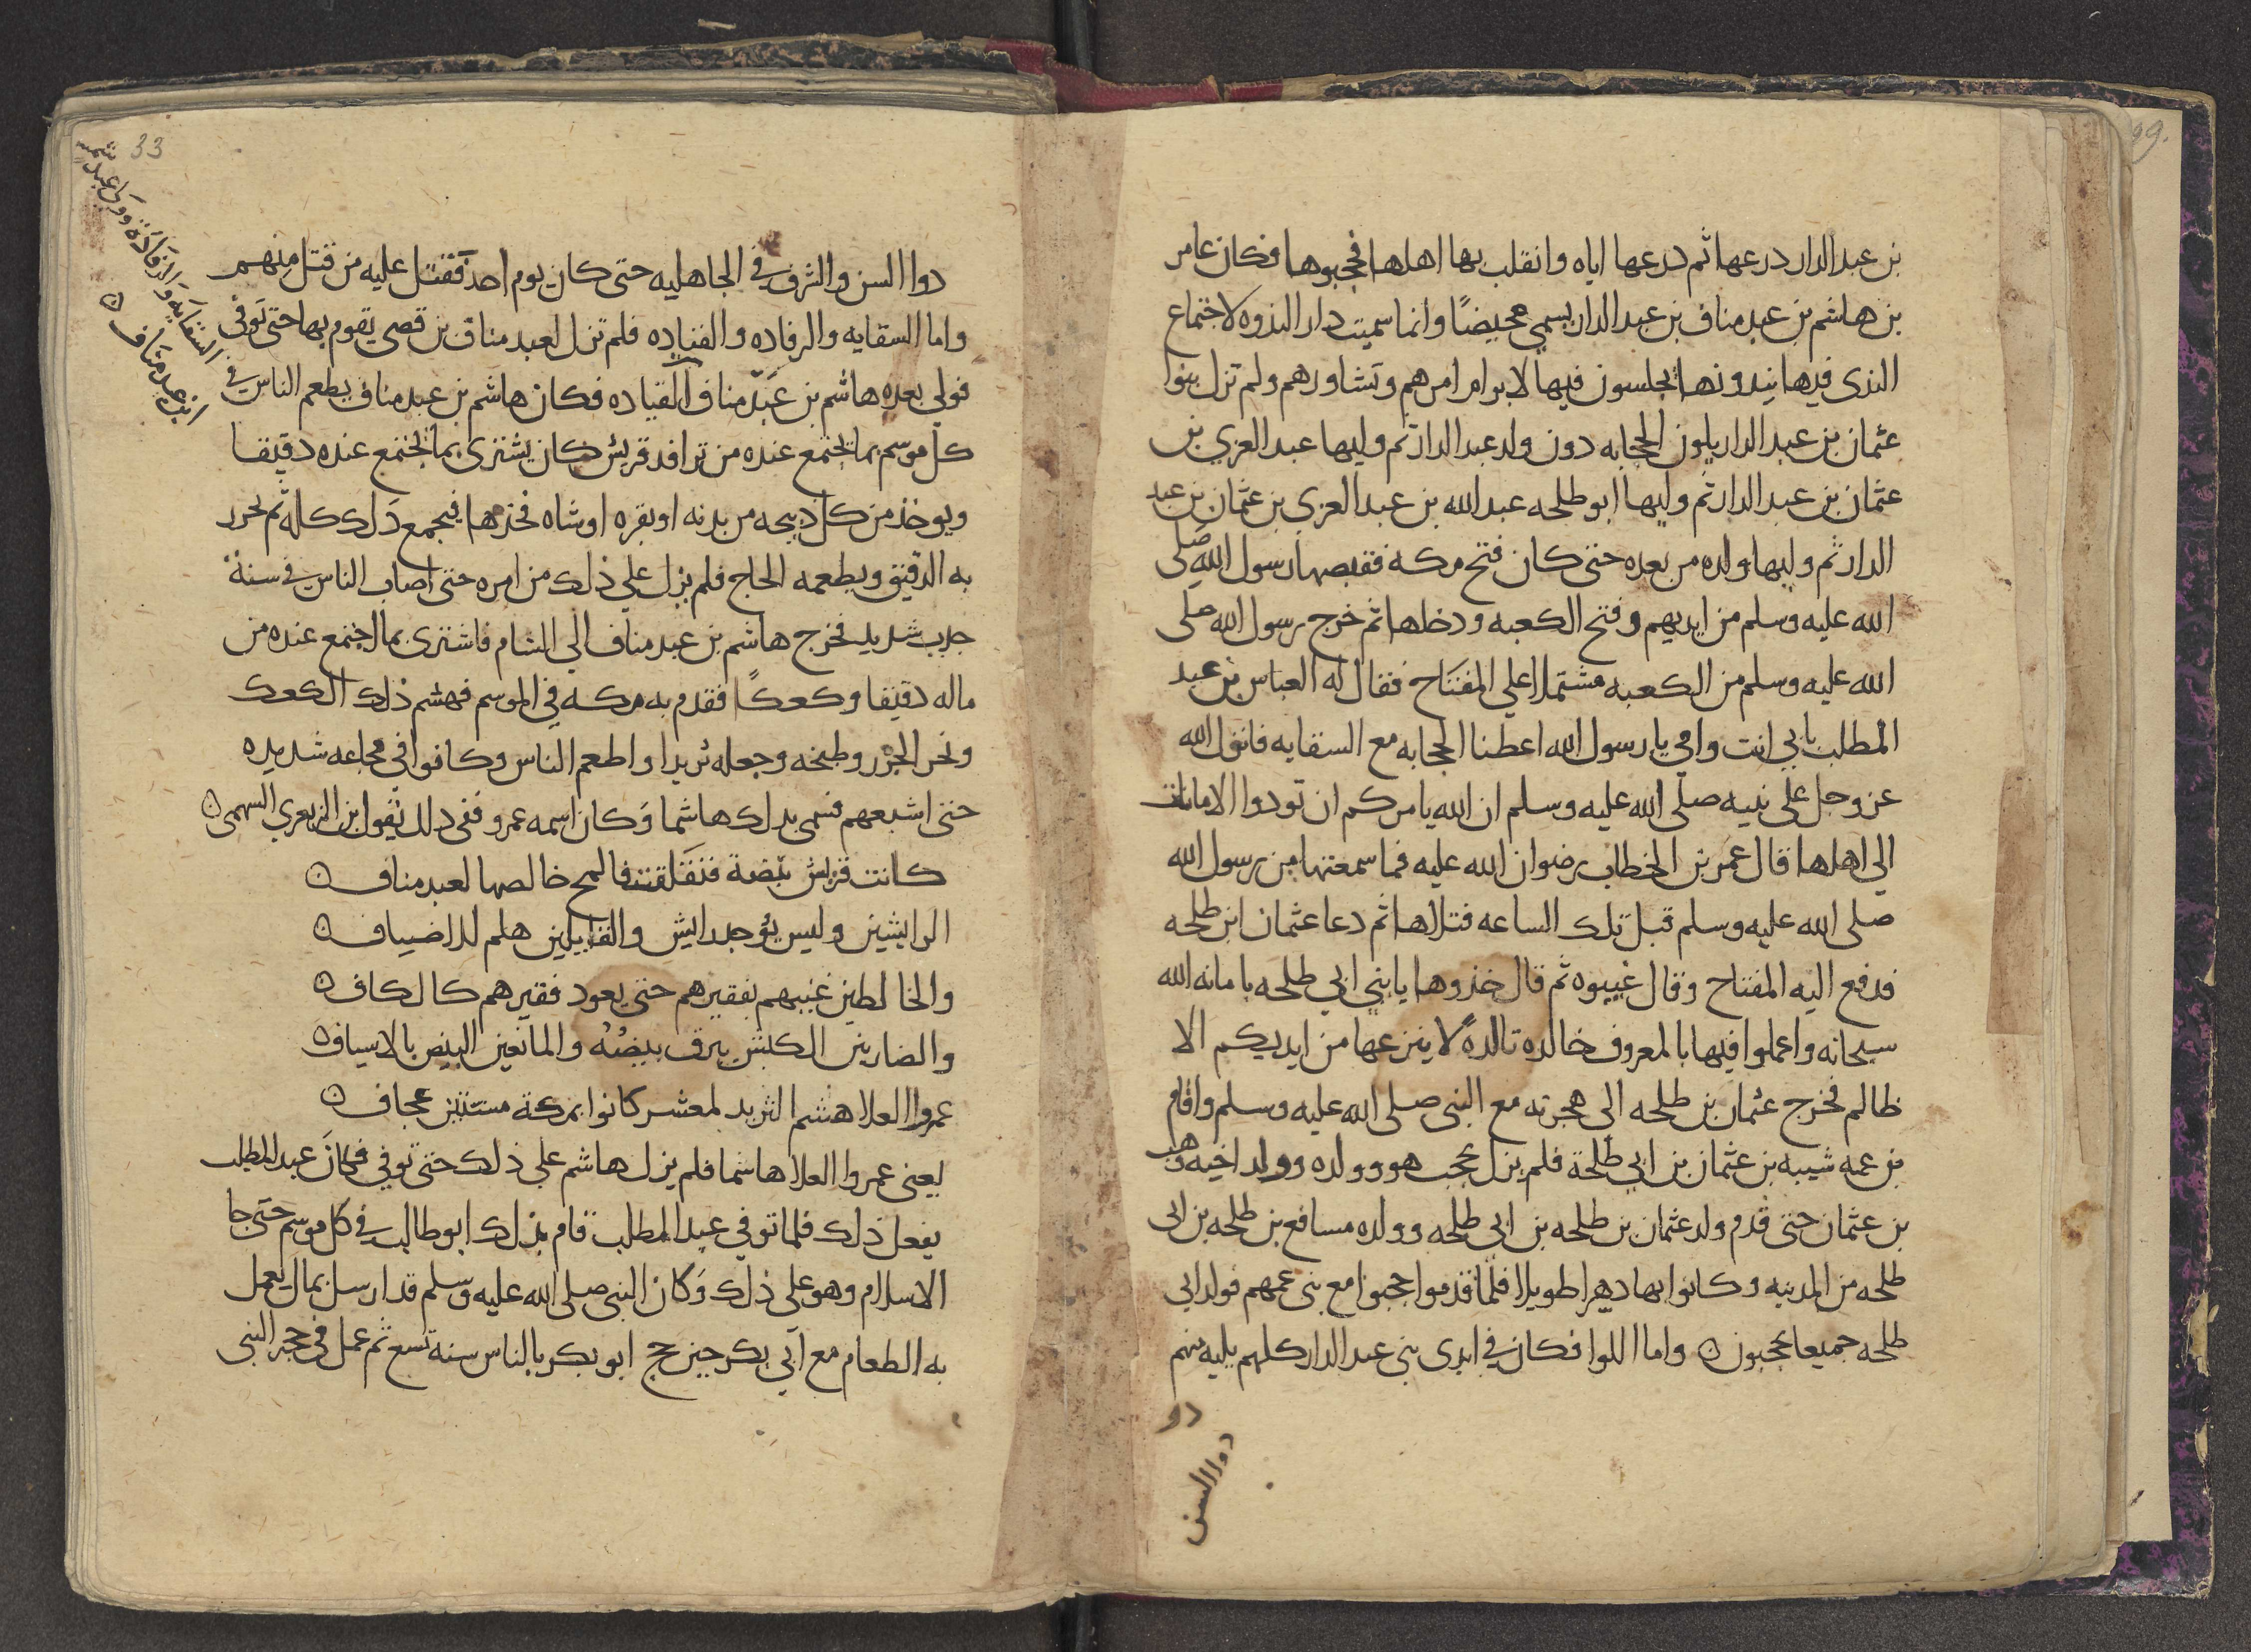 بن عبد الدار درعها ثم درعها اياه وانقلب بها اهلها فحجبوها فكان عامر
بن هاشم بن عبد مناف بن عبد الدار يسمى محيضًا وانما سميت دار الندوه لاجتماع
الندى فيها يندونها يجلسون فيها لابرام امرهم وتشاورهم ولم تزل بنوا
عثمان بن عبد الدار يلون الحجابه دون ولد عبد الدار ثم وليها عبد العزي بن
عثمان بن عبد الدار ثم وليها ابو طلحه عبد الله بن عبد العزي بن عثمان بن عبد
الدار ثم وليها ولده من بعده حتى كان فتح مكة فقبضها رسول الله صلى
الله عليه وسلم من ايديهم وفتح الكعبه ودخلها ثم خرج رسول الله صلى
الله عليه وسلم من الكعبه مشتملا علي المفتاح فقال له العباس بن عبد
المطلب بابي انت وامي يا رسول الله اعطنا الحجابه مع السقايه فانزل الله
عز وجل على نبيه صلى الله عليه وسلم ان الله يامركم ان تودوا الامانات
الي اهلها قال عمر بن الخطاب رضوان الله عليه فما سمعتها من رسول الله
صلى الله عليه وسلم قبل تلك الساعه فتلاها ثم دعا عثمان ابن طلحه
فدفع اليه المفتاح وقال غيبوه ثم قال خذوها يا بني ابي طلحه بامانه الله
سبحانه واعملوا فيها بالمعروف خالده تالدهً لا ينزعها من ايديكم الا
ظالم فخرج عثمان بن طلحه الى هجرته مع النبي صلى الله عليه وسلم واقام
بن عمه شيبه بن عثمان بن ابي طلحة فلم يزل يحجب هو وولده وولد اخيه وهب
بن عثمان حتى قدم ولد عثمان بن طلحه بن ابي طلحه وولده مسافع بن طلحه بن ابى
طلحه من المدينه وكانوا بها دهرا طويلا فلما قدموا حجبوا مع بنى عمهم فولد ابى
طلحه جميعا يحجبون ۞ واما اللوا فكان في ايدى بنى عبد الدار كلهم يليه منهم
دو
دوا السن
33
دوا السن والشرف في الجاهليه حتى كان يوم احد فقتل عليه من قتل منهم
واما السقايه والرفاده والقياده فلم تزل لعبد مناف بن قصي يقوم بها حتى توفى
فولي بعده هاشم بن عبد مناف القياده فكان هاشم بن عبد مناف يطعم الناس في
السقايه والرفادة وولي عبد شمس
ابن عبد مناف ۞
كل موسم بما يجتمع عنده من ترافد قريش كان يشترى بما يجتمع عنده دقيقا
ويوخذ من كل ذبيحه من بدنه او بقره او شاه فخذها فيجمع ذلك كله ثم يحرر
به الدقيق ويطعمه الحاج فلم يزل علي ذلك من امره حتى اصاب الناس في سنة
جدب شديد فخرج هاشم بن عبد مناف الي الشام فاشترى بما اجتمع عنده من
ماله دقيقا وكعكًا فقدم به مكه في الموسم فهشم ذلك الكعك
ونحر الجزر وطبخه وجعله ثريدا واطعم الناس وكانوا في مجاعه شديده
حتى اشبعهم فسمى بدلك هاشما وكان اسمه عمرو ففي دلك يقول ابن الزبعري السهمى ۞
كانت قريش بيضة فتفلقت فالمح خالصها لعبد مناف ۞
الرايشين وليس يوجد رايش والقايلين هلم للاضياف ۞
والخالطين غنيهم بفقيرهم حتى يعود فقيرهم كالكاف ۞
والضاربين الكبش يبرق بيضُهُ والمانعين البيض بالاسياف ۞
عمروا العلا هشم الثريد لمعشر كانوا بمكة مسنتين عجاف ۞
يعنى عمروا العلا هاشما فلم يزل هاشم علي ذلك حتى توفي فكان عبد المطلب
يفعل ذلك فلما توفي عبد المطلب قام بذلك ابو طالب في كل موسم حتى جا
الاسلام وهو على ذلك وكان النبى صلى الله عليه وسلم قد ارسل بمال يعمل
به الطعام مع ابي بكر حين حج ابو بكر بالناس سنة تسع ثم عمل في حجر النبى